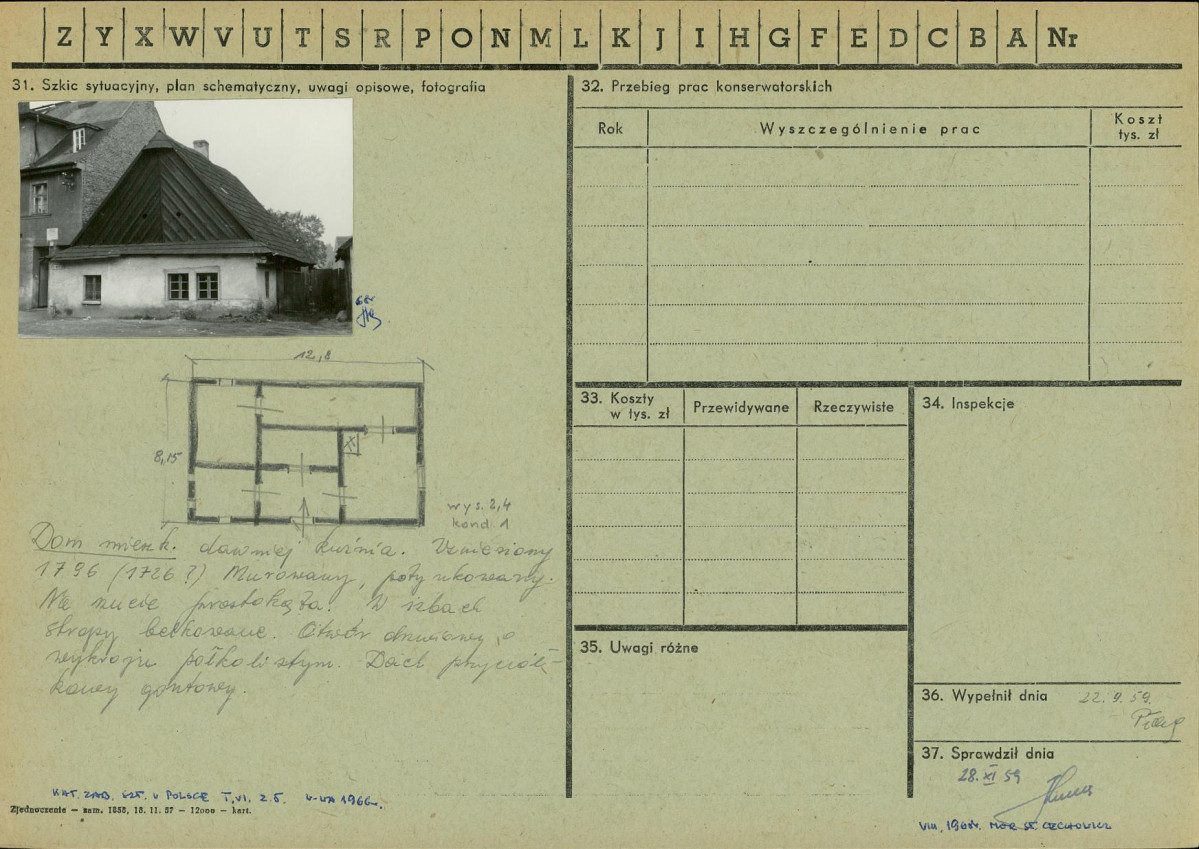 Z Y X W V U T S R P O N M L K J I H G F E D C B A Nr
31. Szkic sytuacyjny, plan schematyczny, uwagi opisowe, fotografia
12,8
8,15
wys. 2,4
kond. 1
Dom mieszk. dawniej kuźnia. Wzniesiony
1796 (1726?) Murowany, potynkowany.
Na rzucie prostokąta. W izbach
stropy belkowane. Otwór drzwiowy o
wykroju półkolistym. Dach przyciół-
kowy gontowy.
KAT. ZAB. SZT. W POLSCE T. VI, Z. 5. W-WA 1966.
Zjednoczenie — zam. 1858, 18. 11. 57 — 12000 — kart.
32. Przebieg prac konserwatorskich
Rok
Wyszczególnienie prac
Koszt
tys. zł
33. Koszty
w tys. zł
Przewidywane
Rzeczywiste
34. Inspekcje
35. Uwagi różne
36. Wypełnił dnia 22. 9. 59.
37. Sprawdził dnia
28. XI 59
VIII, 1968r. MGR